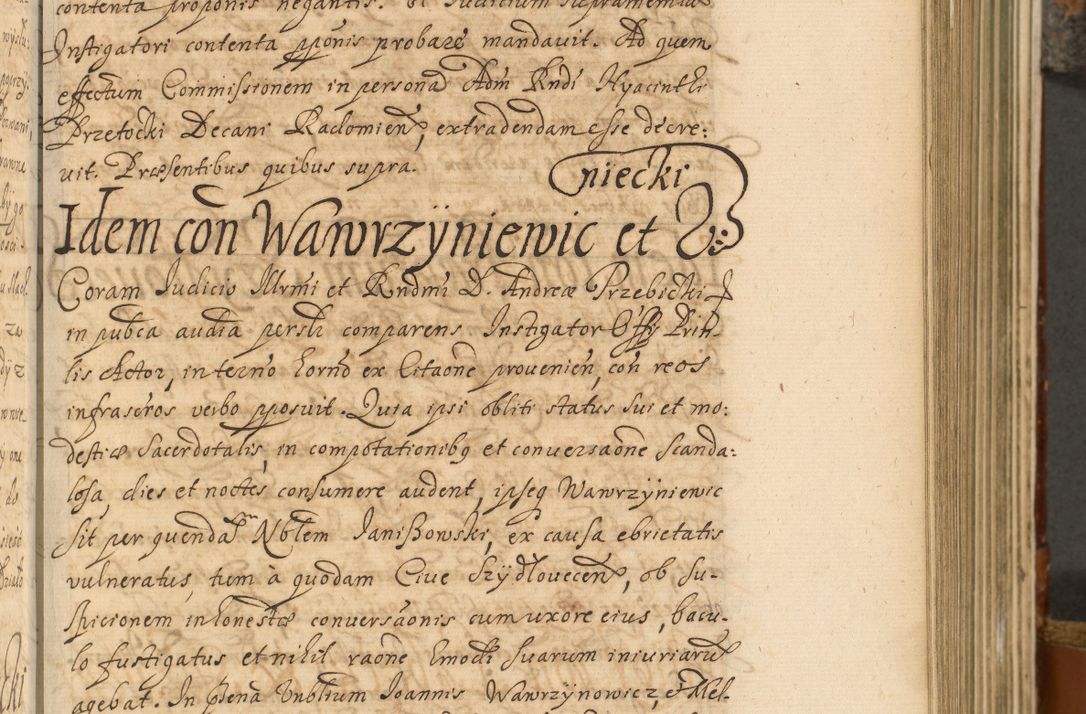 contenta proponis negantis. Et Judicium supramemu
Instigatori contenta pponis probare mandavit. Ad quem
effectum Commissionem in persona Adm Rndi Hyacinthi
Przetocki Decani Radomien, extradendam esse decre:
vit. Præsentibus quibus supra.
niecki
Idem con Wawrzÿniewic et
Coram Judicio Illrmi et Rndmi D. Andreæ Przebicki
in pubca audia persli comparens Instigator Offy Prin
lis Actor, in termo horno ex Citaone provenien, con reos
infrascros verbo pposuit. Quia ipsi obliti status sui et mo:
destiæ Sacerdotalis, in compotationibq et conversaone scanda:
losa, dies et noctes consumere audent, ipseq Wawrzÿniewic
sit per quendam Nblem Janißowski, ex causa ebrietatis
vulneratus, tum à quodam Cive Szÿdlovecen, ob su-
spicionem inhonestæ conversaonis cum uxore eius, bacu-
lo fustigatus et nihil raone Emodi suarum iniuriaru
agebat. In Unblium Joannis Wawrzÿnowicz, et Mel-